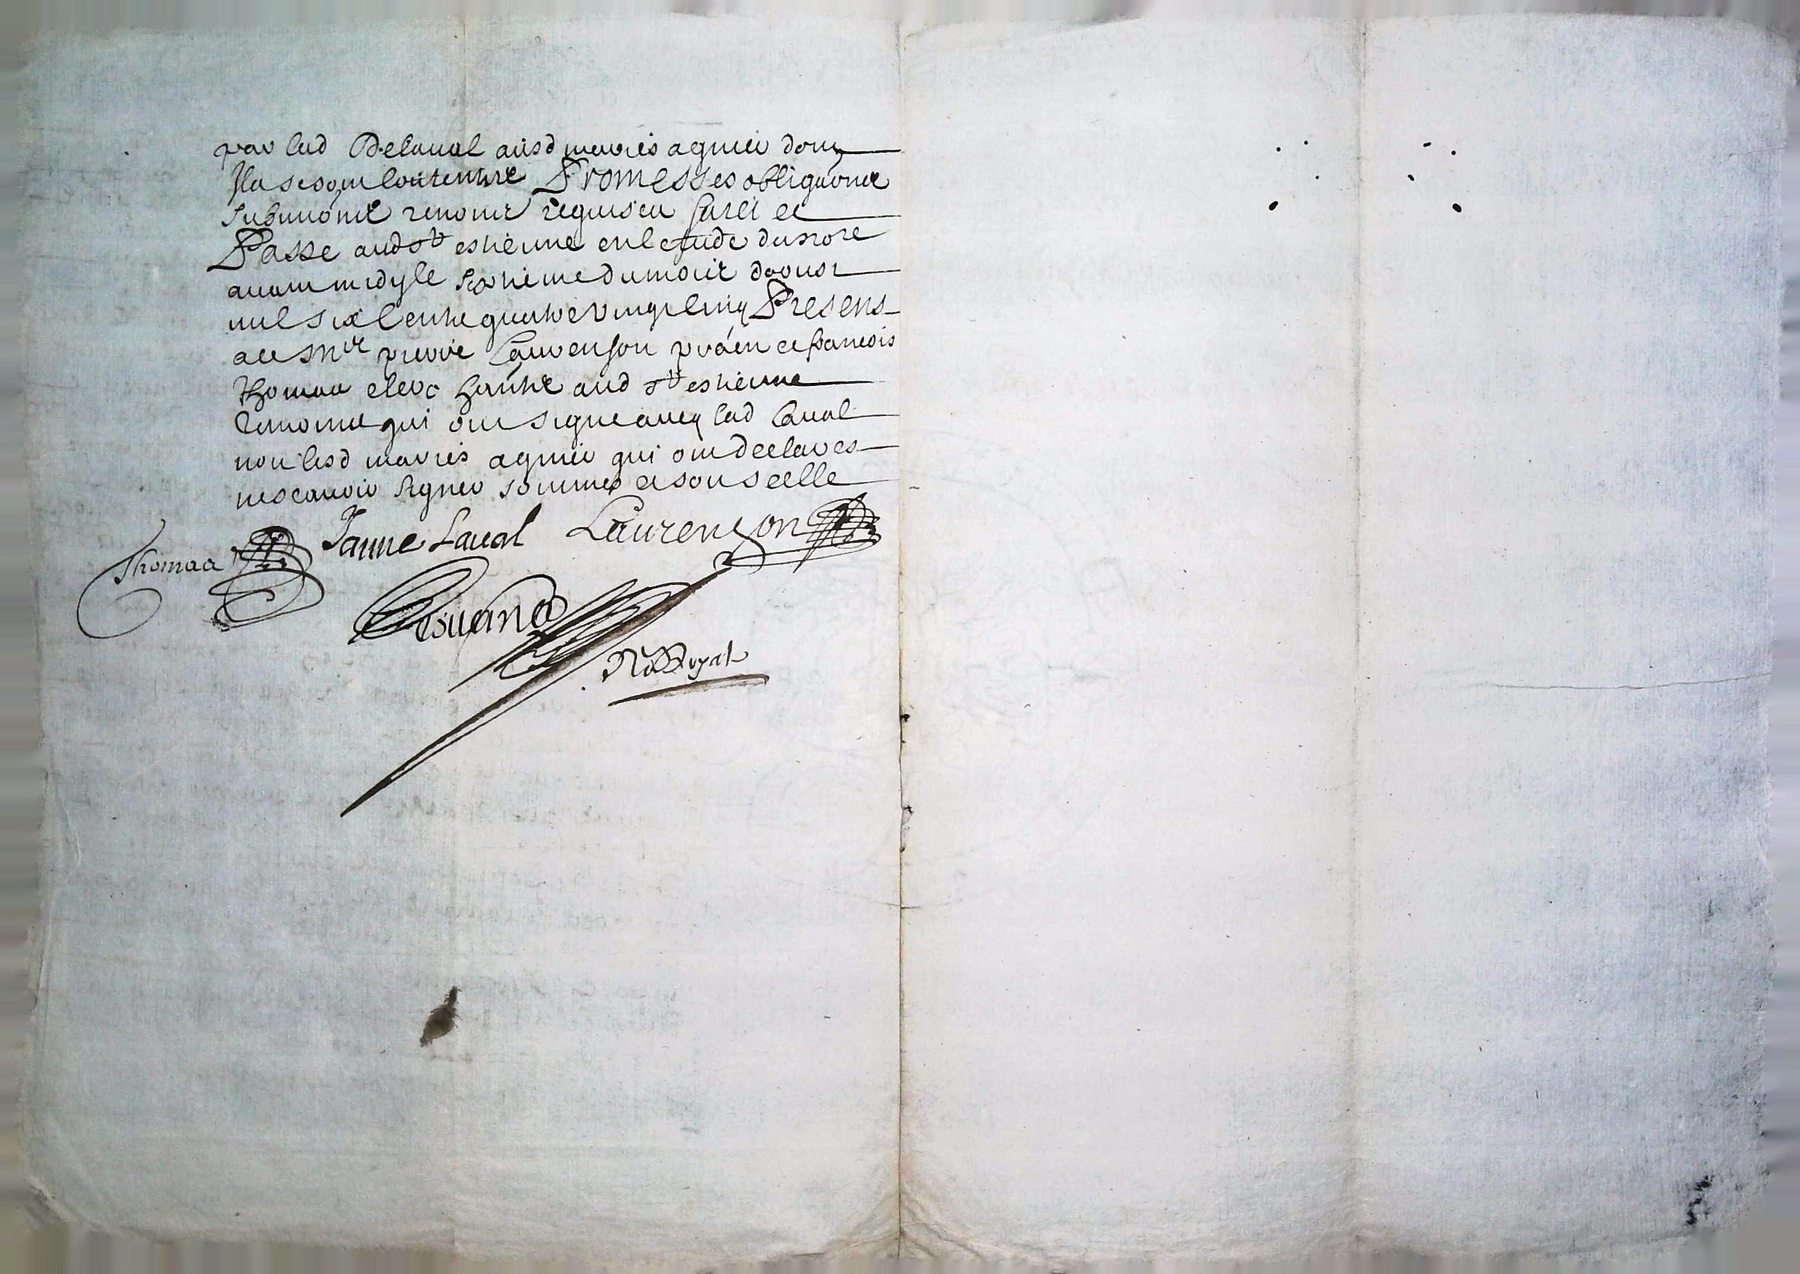 par lad Delaval ausd mariés agnier dont
Ilz se sont contentné Promesses obligaonce
submonet renonct requis eu faict et
Passe aud st estienne en lestude du nore
avant midy le sixiieme du mois daoust
mil six cents quatre vingt cinq Presens
a ce Mre pierre Laurenson praen et francois
Thomaa clerc hantz aud st estienne
tesmoins qui ont signe avecq lad Laval
non lesd mariés agnier qui ont declares
ne scavoir signer sommes et sous celle
Janne Laval Laurenson
Thomaa
No Royal